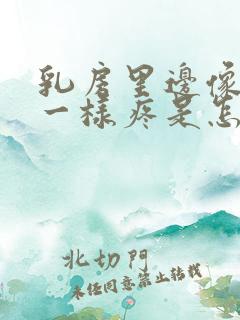 乳房里邊像
一樣疼是怎
北切門
未经同意禁止转载